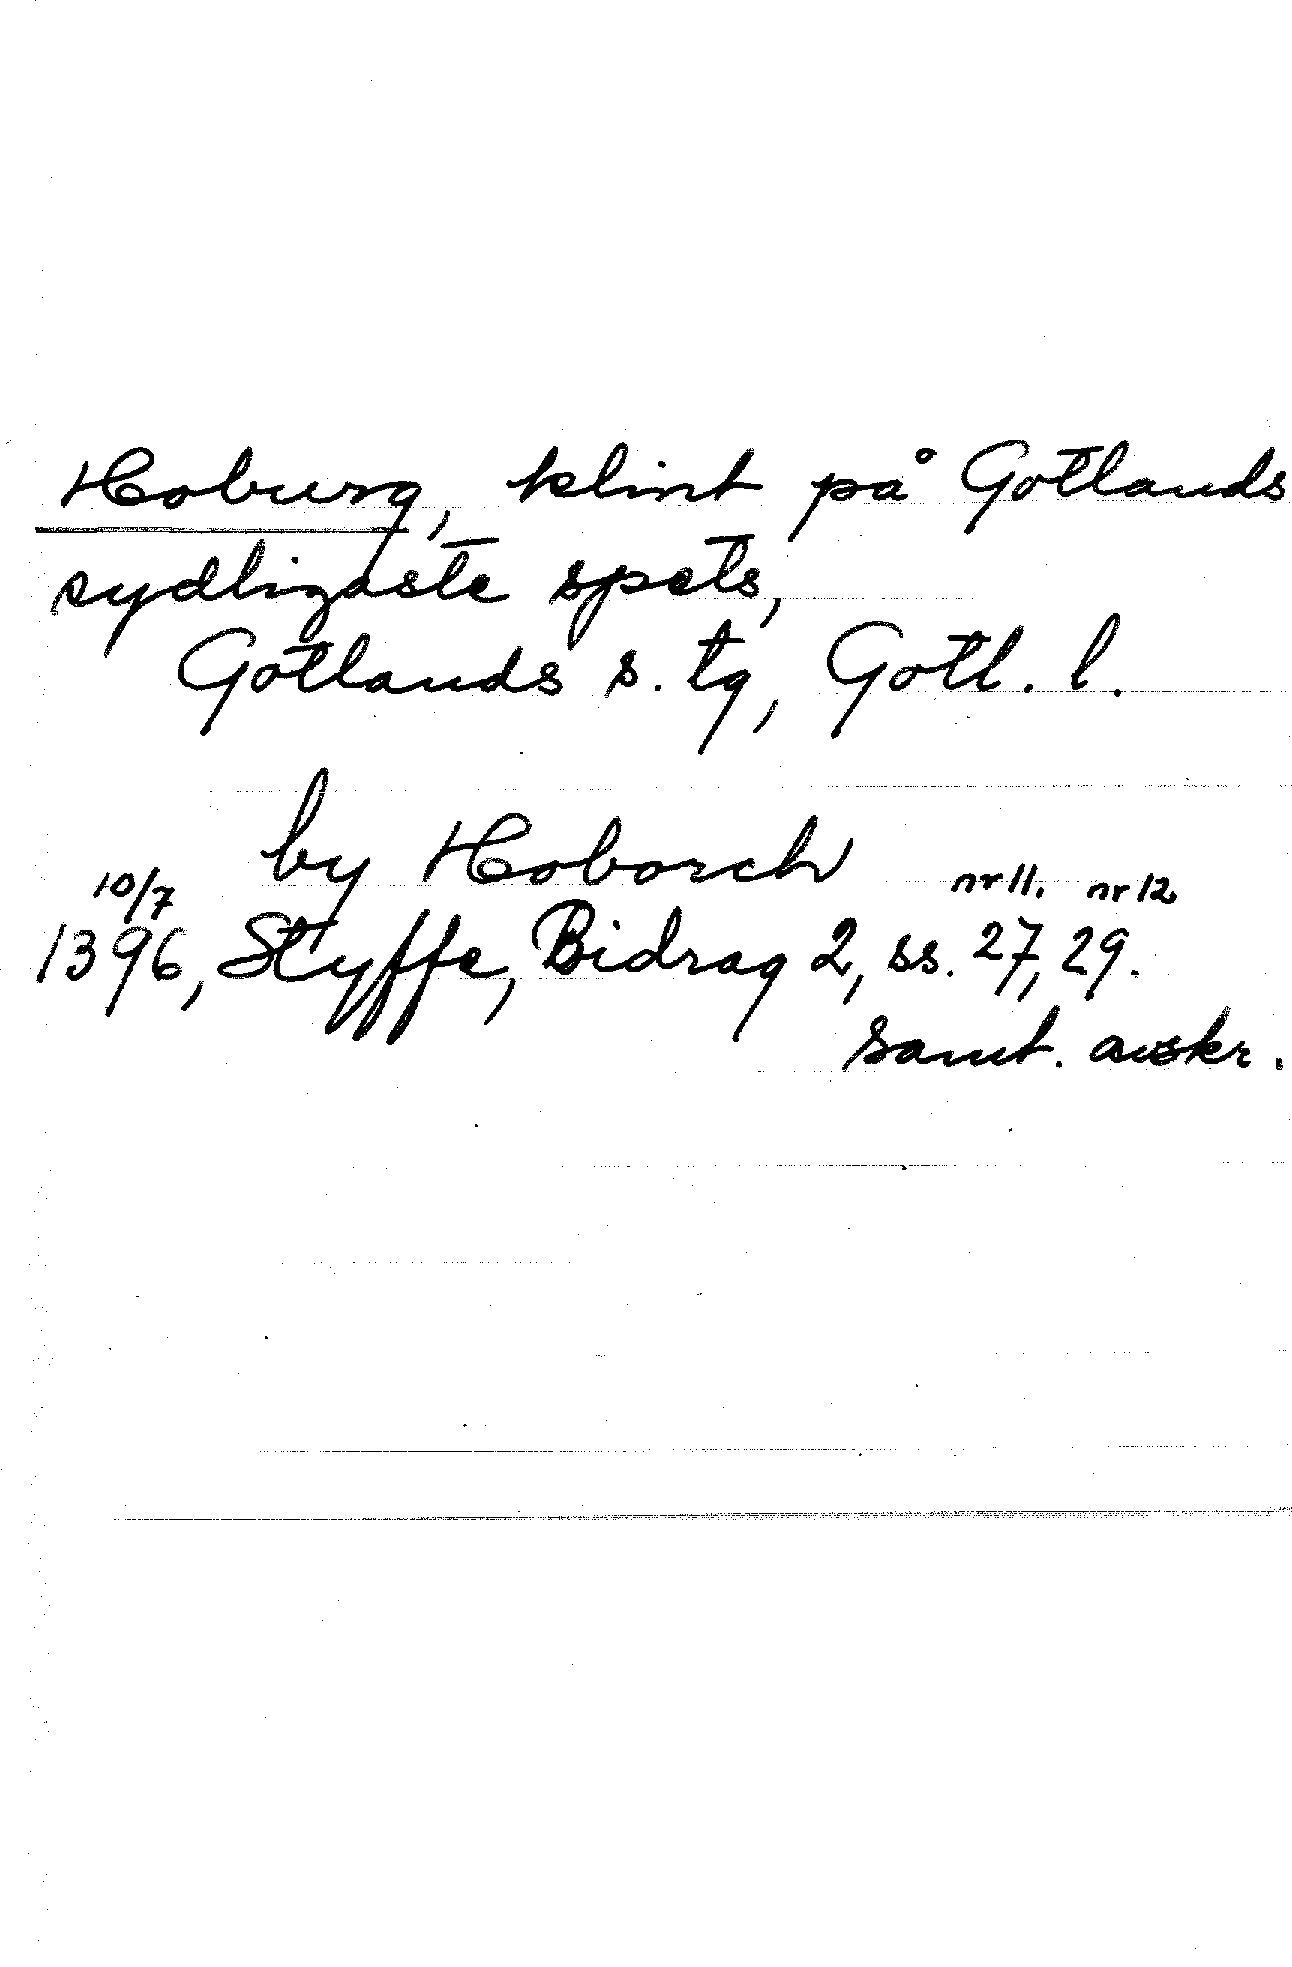 Hoburg, klint på Gotlands
sydligaste spets,
Gotlands s. tg, Gotl. l.
by Hoborch
10/7 nr 11. nr 12.
1396, Styffe, Bidrag 2, ss. 27, 29.
samt. avskr.